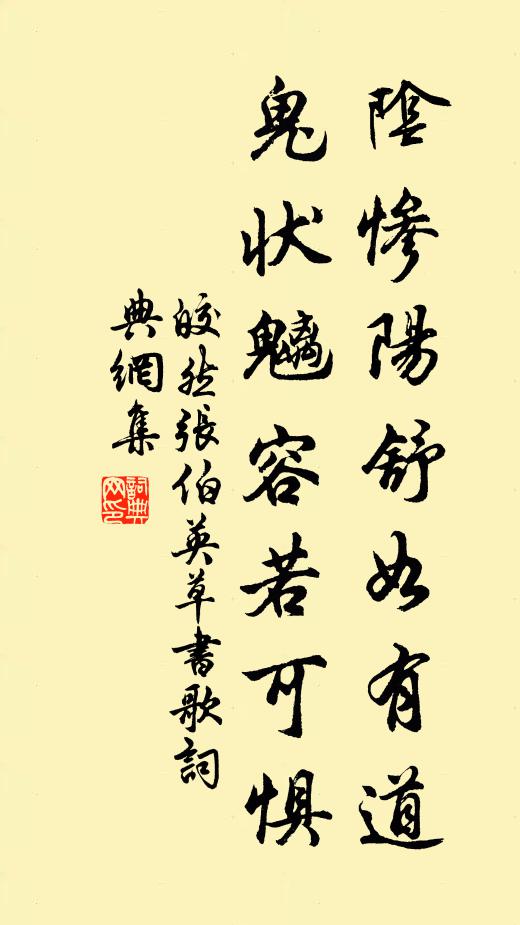 陰慘陽舒如有道
鬼状魑容若可懼
皎然張伯英草書歌詞
典網集
詞典网印